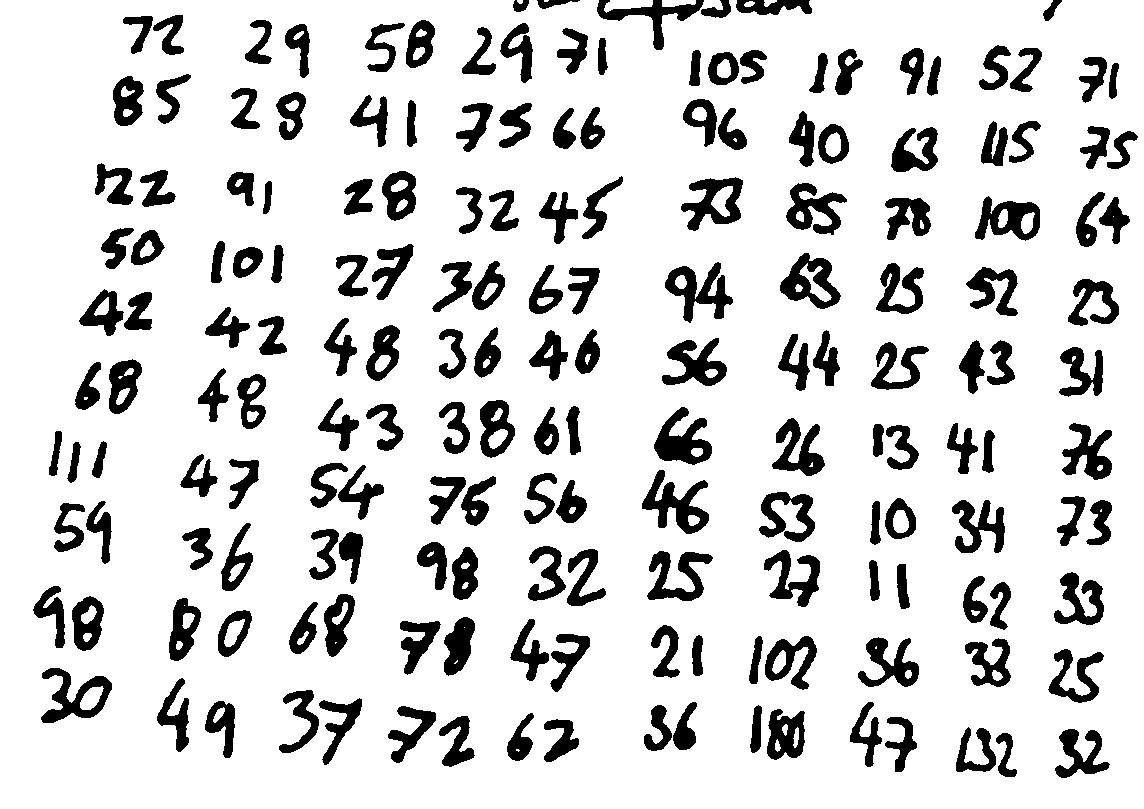 72 29 58 29 71 105 18 91 52 71
85 28 41 75 66 96 40 63 115 75
122 91 28 32 45 73 85 78 100 64
50 101 27 36 67 94 63 25 52 23
42 42 48 36 46 56 44 25 43 31
68 48 43 38 61 66 26 13 41 76
111 47 54 75 56 46 53 10 34 73
59 36 39 98 32 25 27 11 62 33
98 80 68 78 47 21 102 36 33 25
30 49 37 72 62 36 180 47 132 32